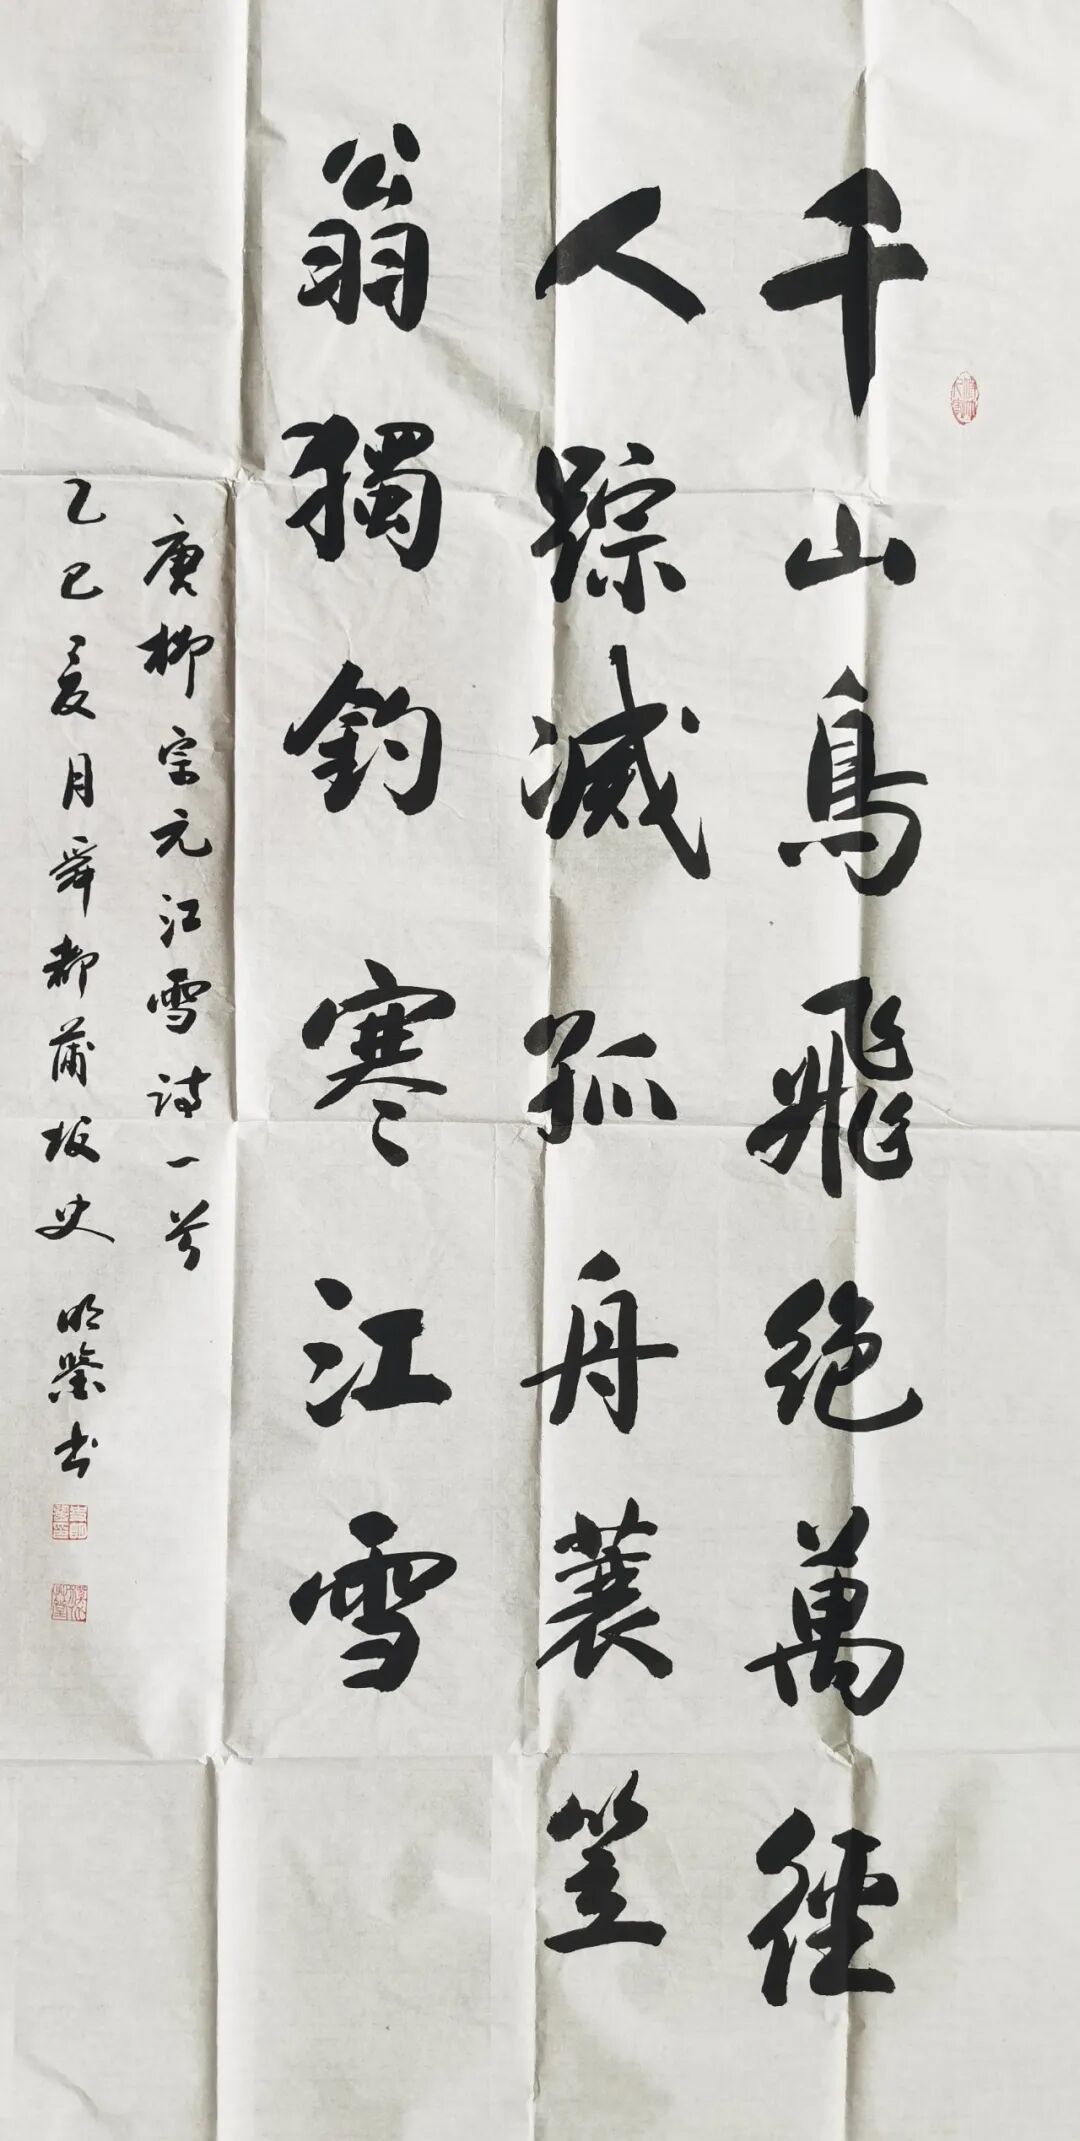 千山鳥飛絶萬徑
人踪滅孤舟蓑笠
翁獨釣寒江雪
唐柳宗元江雪詩一首
乙巳夏月舜都蒲坂史明鑒书